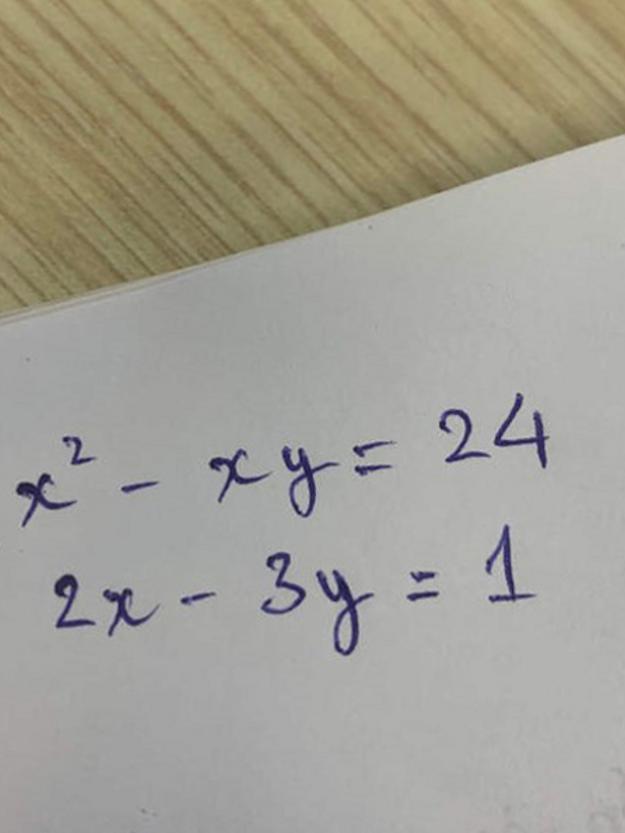 x² - xy = 24
2x - 3y = 1